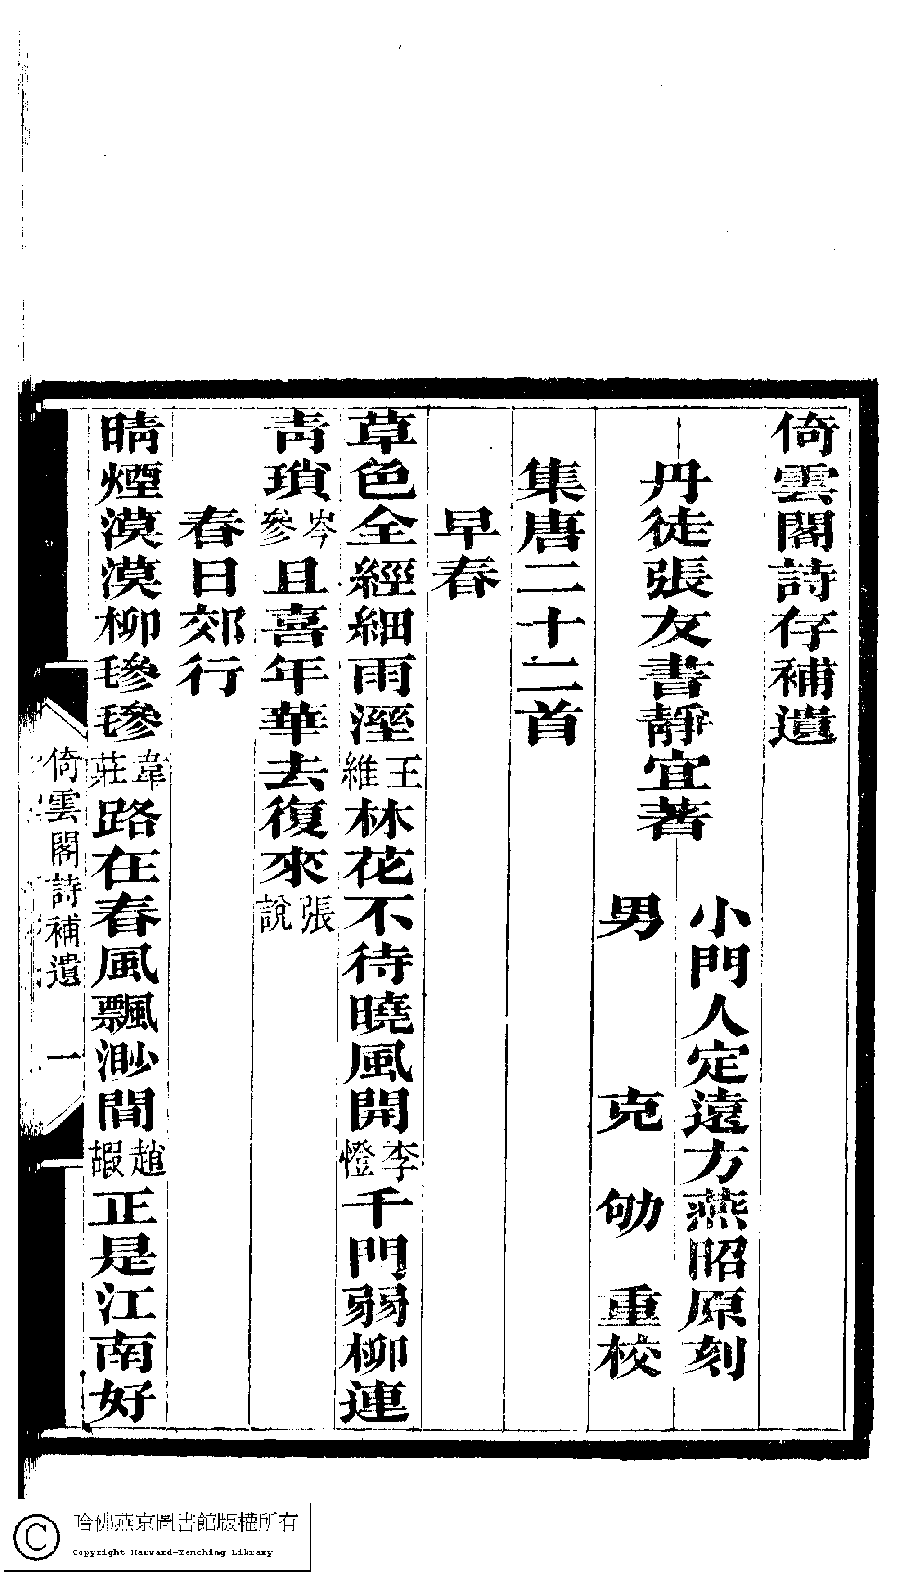 倚雲閣詩存補遺
丹徒張友書靜宜著
小門人定遠方燕昭原刻
男克劬重校
集唐二十二首
早春
草色全經細雨溼王維林花不待曉風開李憕千門弱柳連
青瑣岑參且喜年華去復來張說
春日郊行
晴煙漠漠柳毿毿韋莊路在春風飄渺間趙嘏正是江南好
倚雲閣詩補遺 一
哈佛燕京圖書館版權所有
Copyright Harvard-Yenching Library